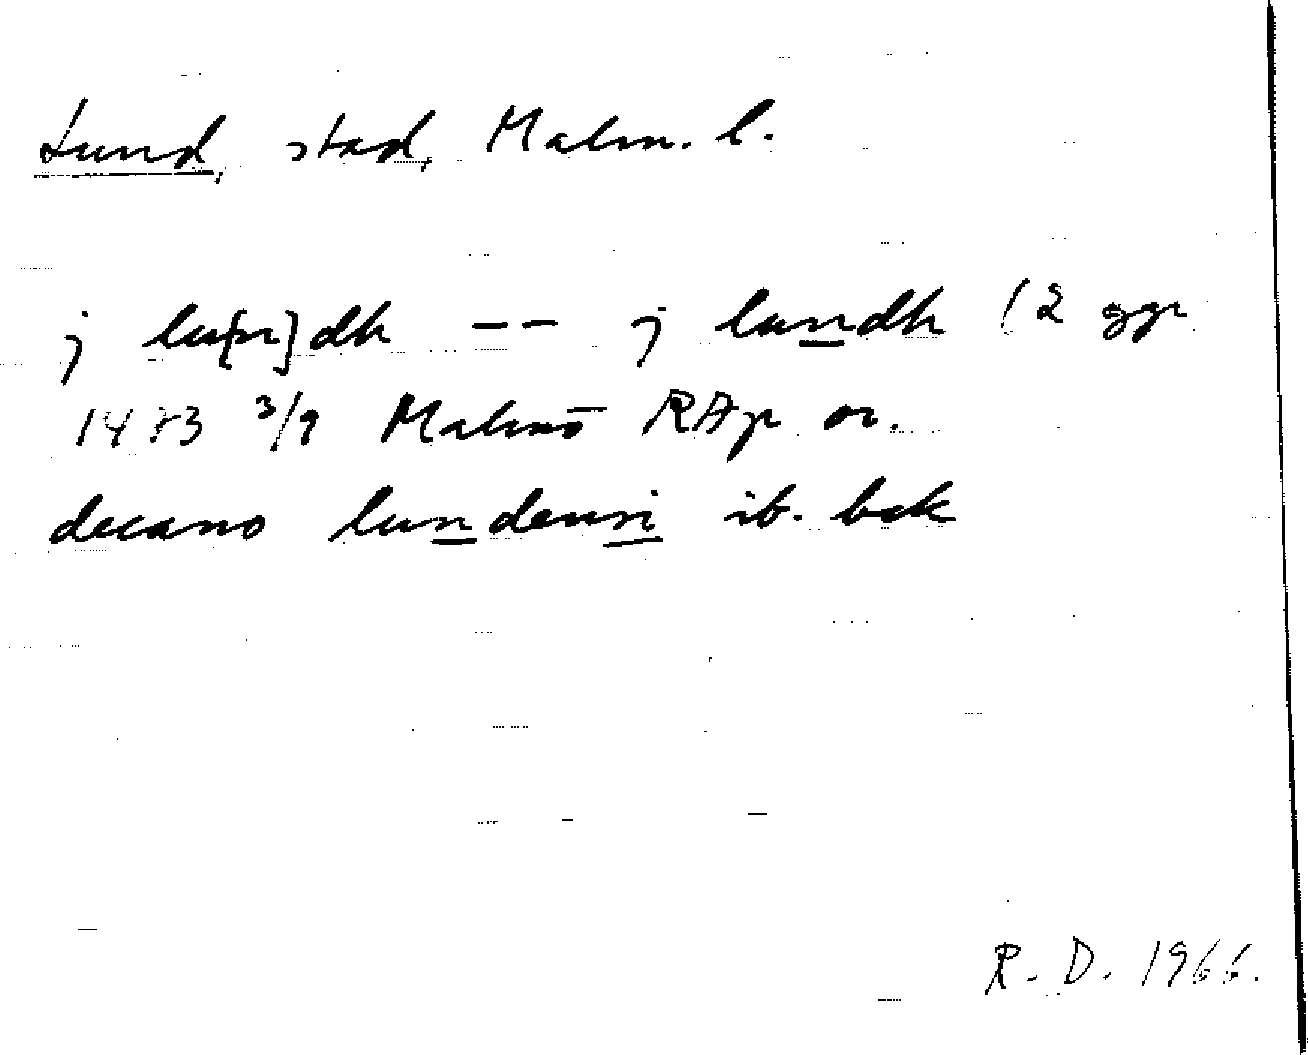 Lund, stad, Malm. l.
j lu[n]dh -- j lundh (2 ggr
1473 3/9 Malmö RAp or.
decano lundensi ib. bak
R. D. 1966.